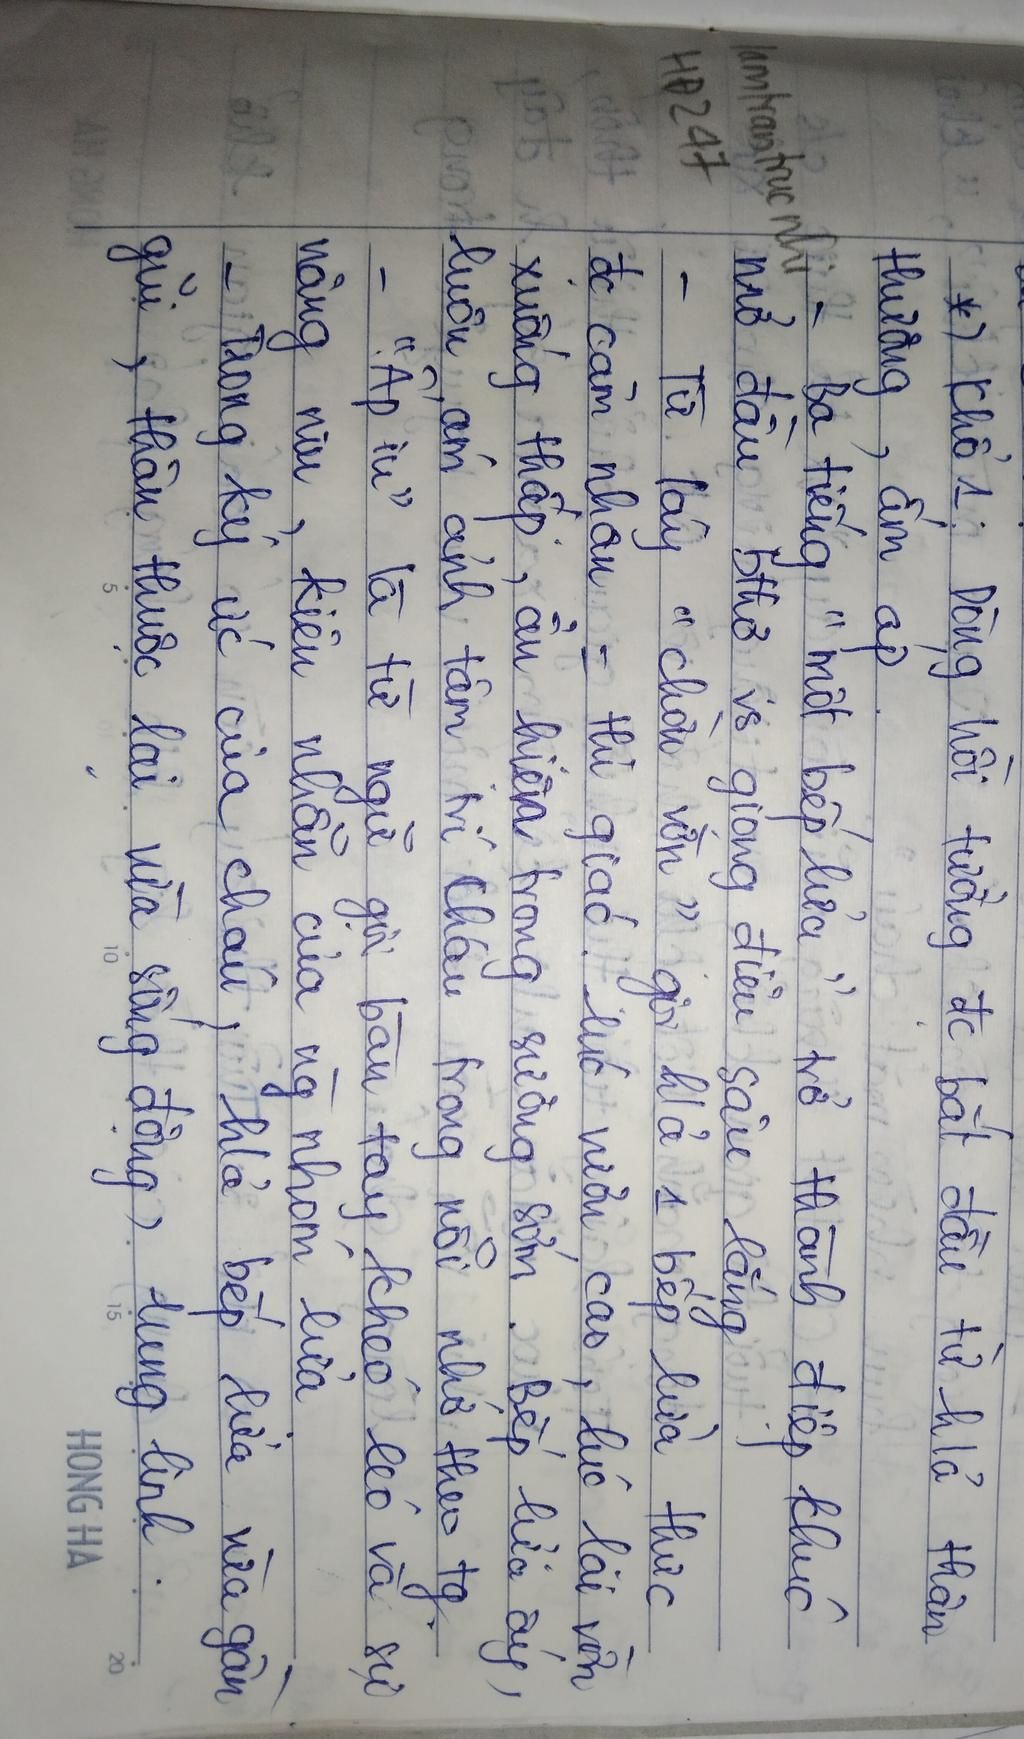 *) Khổ 1: Dòng hồi tưởng đc bắt đầu từ h/ả thân
thương, ấm áp.
- Ba tiếng "một bếp lửa" trở thành điệp khúc
mở đầu bthơ vs giọng điệu sâu lắng
- Từ láy "chờn vờn" gợi h/ả 1 bếp lửa thực
đc cảm nhận = thị giác: lúc vươn cao, lúc lài vờn
xuống thấp, ẩn hiện trong sương sớm. Bếp lửa ấy,
luôn ám ảnh tâm trí cháu trong nỗi nhớ theo tg.
- "Ấp iu" là từ ngữ gợi bàn tay khéo léo và sự
nâng niu, kiên nhẫn của ng nhóm lửa
- Trong ký ức của cháu, h/ả bếp lửa vừa gần
gũi, thân thuộc lại vừa sống động, lung linh.
lamtrantrucnhi
HĐ247
5
10
15
20
HONG HA